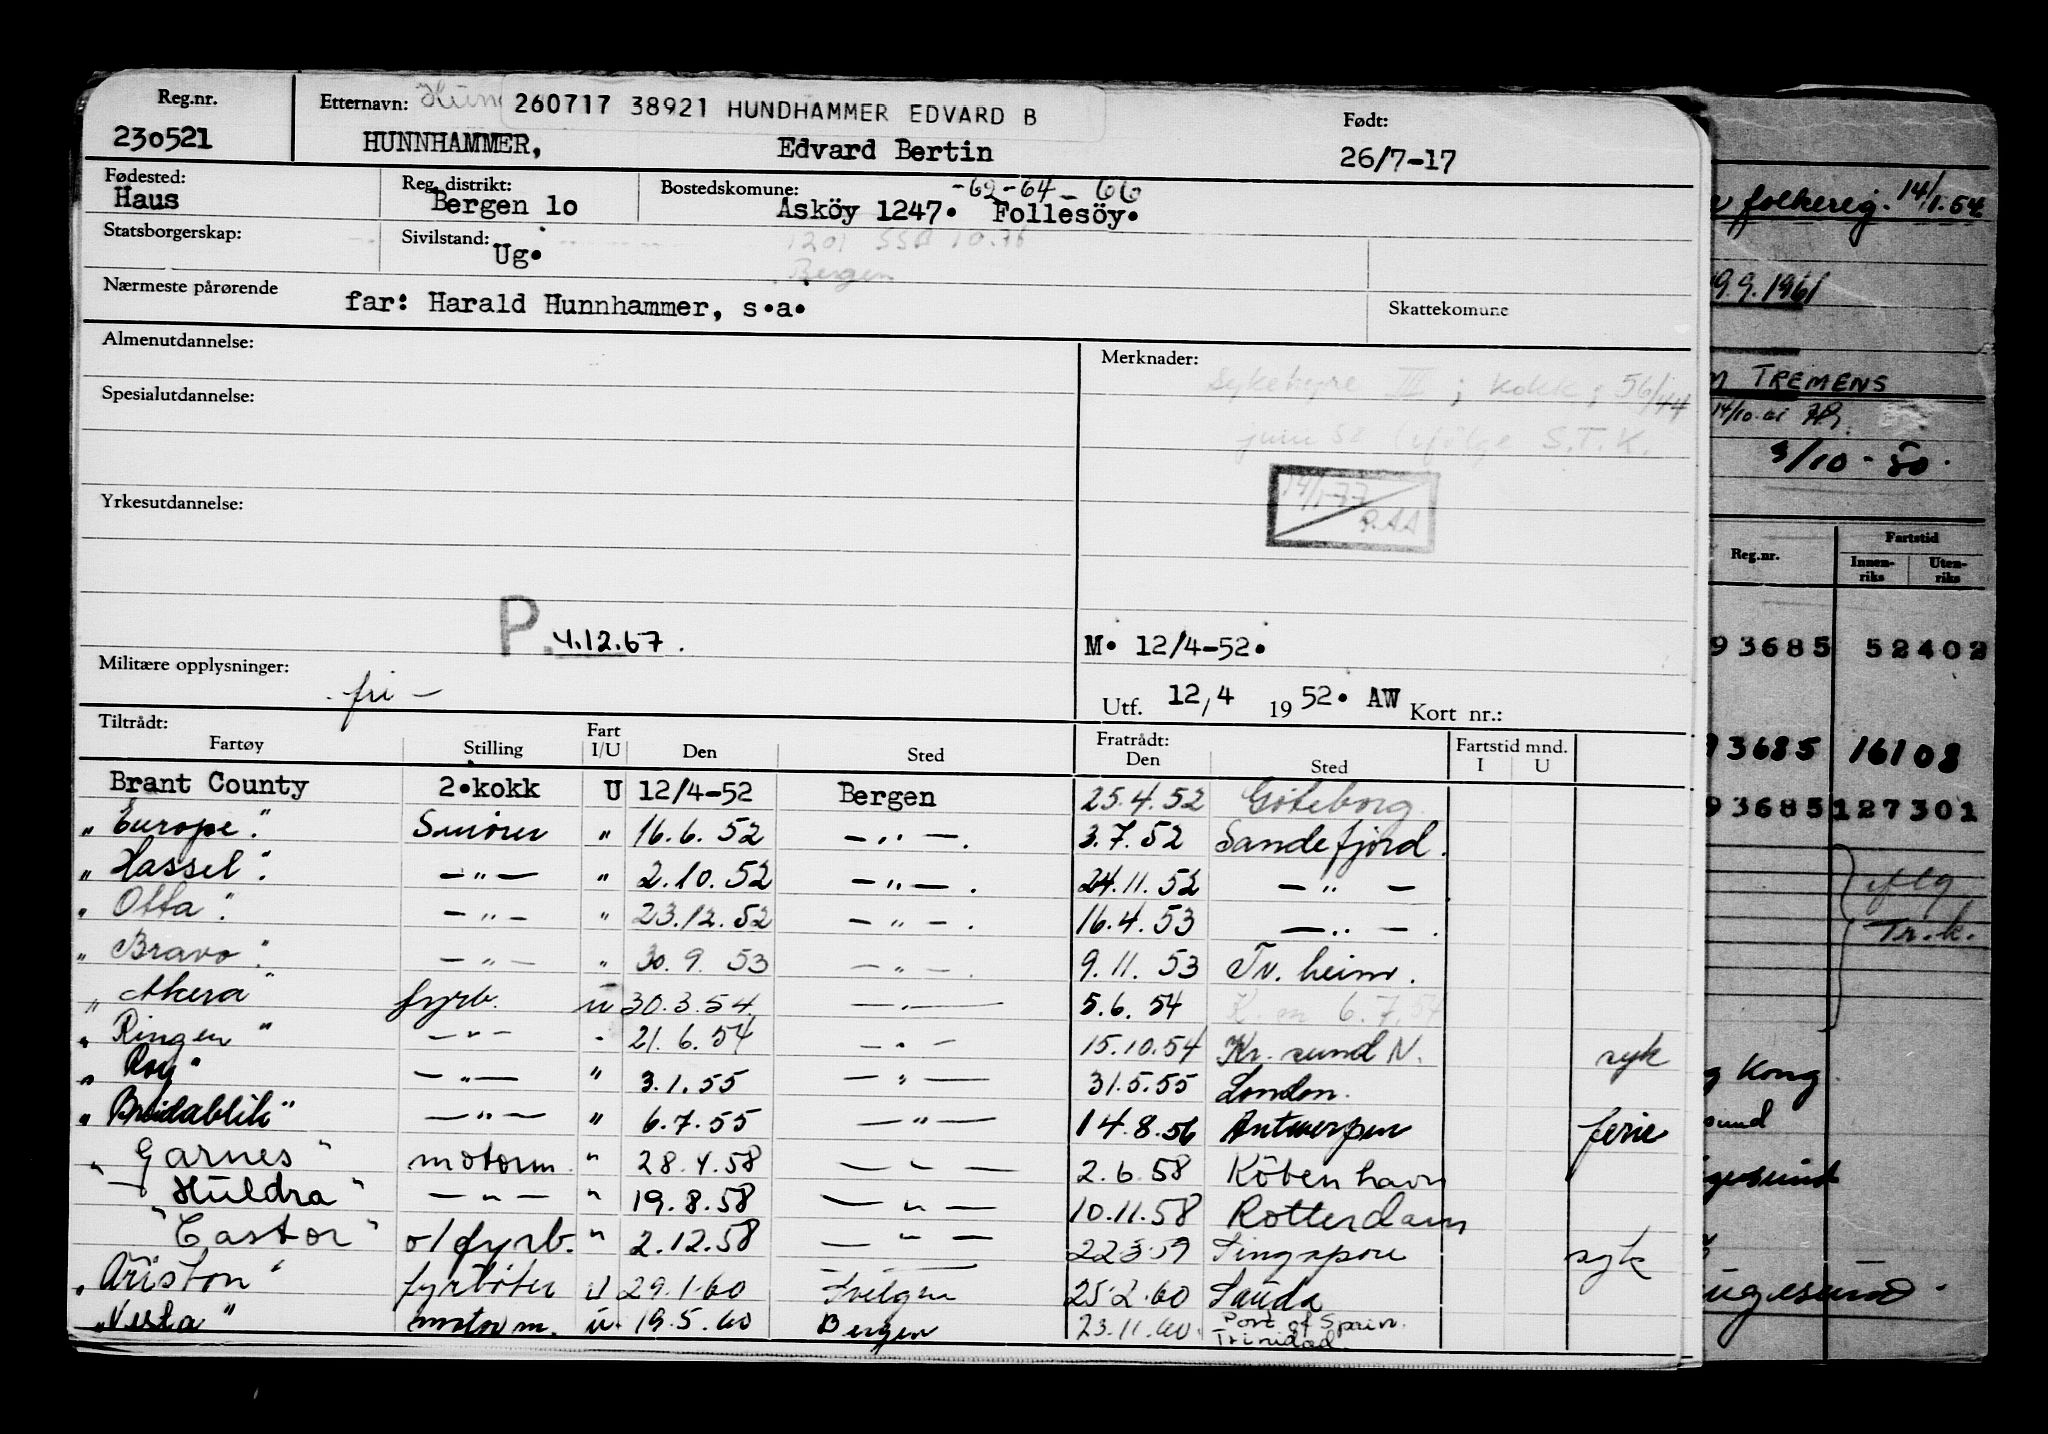 Reg.nr. Etternavn: 260717 38921 HUNDHAMMER EDVARD B Født:
230521 HUNNHAMMER, Edvard Bertin 26/7-17
Fødested: Reg. distrikt: Bostedskomune: -62-64-66
Haus Bergen 10 Asköy 1247. Follesöy.
Statsborgerskap: Sivilstand: Ug.
1201 SSB 10.76
Bergen
Nærmeste pårørende far: Harald Hunnhammer, s.a. Skattekomune
Almenutdannelse: Merknader:
Sykehyre III ; Kokk ; 56/44
Spesialutdannelse:
juni 58 ifølge S.T.K.
14/1-77
Yrkesutdannelse:
P. 4.12.67. M. 12/4-52.
Militære opplysninger: - fri -
Utf. 12/4 1952. AW Kort nr.:
Tiltrådt: Fart Fratrådt: Fartstid mnd.
Fartøy Stilling I/U Den Sted Den Sted I U
Brant County 2.kokk U 12/4-52 Bergen 25.4.52 Göteborg
" Europe." Smører " 16.6.52 -"-. 3.7.52 Sandefjord.
" Hassel." -"- " 2.10.52 -"-. 24.11.52 -"-
" Otta." -"- " 23.12.52 -"-. 16.4.53 -"-.
" Bravo." -"- " 30.9.53 -"-. 9.11.53 Tr.heim.
" Akera" fyrb. u 30.3.54 -"- 5.6.54 K. m 6.7.54
" Ringen" -"- " 21.6.54 -"- 15.10.54 Kr.sund N. syk
" Roy" -"- " 3.1.55 -"- 31.5.55 London.
" Breidablik" -"- " 6.7.55 -"- 14.8.56 Antwerpen ferie
" Garnes" motorm. " 28.4.58 -"- 2.6.58 Köbenhavn
" Huldra" -"- " 19.8.58 -"- 10.11.58 Rotterdam
" Castor" o/fyrb. " 2.12.58 -"- 22.3.59 Singapore syk
" Ariston" fyrbøter U 29.1.60 Svelgen 25.2.60 Sauda
" Vesta" motorm. u. 19.5.60 Bergen 23.11.60. Port of Spain.
Trinidad.
folkereg. 14/1.64
9.9.1961
TREMENS
14/10.61
3/10-50.
Reg.nr. Fartstid
Innen-riks Uten-riks
93685 52402
93685 16108
93685 127301
Tr.k.
Kong
sund
gesund
ugesund.